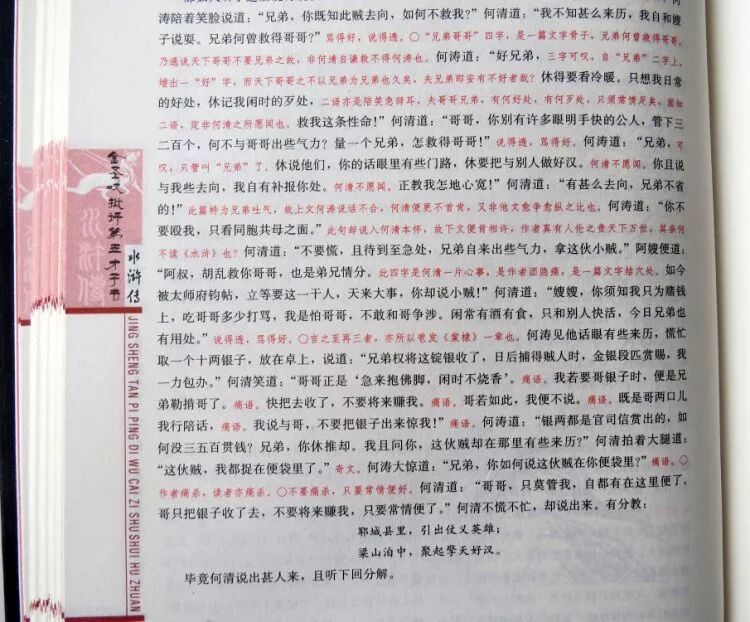 涛陪着笑脸说道：“兄弟，你既知此贼去向，如何不救我？”何清道：“我不知甚么来历，我自和嫂
子说耍。兄弟何曾救得哥哥？”骂得好，说得透。〇“兄弟哥哥”四字，是一篇文字骨子，兄弟何曾救得哥哥，
乃通说天下哥哥不要兄弟之故，非何清自谦救不得何涛也。何涛道：“好兄弟，三字可叹，自“兄弟”二字上，
增出一“好”字，而天下哥哥之不以兄弟为兄弟也久矣，夫兄弟即安有不好者哉？休得要看冷暖。只想我日常
的好处，休记我闲时的歹处，二语亦是陪笑急辞耳，夫哥哥兄弟，有何好处，有何歹处，只须常情足矣，固知
二语，定非何清之所愿闻也。救我这条性命！”何清道：“哥哥，你别有许多眼明手快的公人，管下三
二百个，何不与哥哥出些气力？量一个兄弟，怎救得哥哥！”说得透，骂得好。何涛道：“兄弟，可
叹，只管叫“兄弟”了。休说他们，你的话眼里有些门路，休要把与别人做好汉。何清不愿闻。你且说
与我些去向，我自有补报你处。何清不愿闻。正教我怎地心宽！”何清道：“有甚么去向，兄弟不省
的！”此篇特为兄弟吐气，故上文何涛说话不合，何清便更不首肯，又非他文愈争愈纵之比也。何涛道：“你不
要殴我，只看同胞共母之面。”此句却说入何清本怀，故下文便肯相许，作者真有人伦之责天下万世，其奈何
不读《水浒》也？何清道：“不要慌，且待到至急处，兄弟自来出些气力，拿这伙小贼。”阿嫂便道：
“阿叔，胡乱救你哥哥，也是弟兄情分。此四字是何清一片心事，是作者团隐痛，是一篇文字结穴处。如今
被太师府钧帖，立等要这一干人，天来大事，你却说小贼！”何清道：“嫂嫂，你须知我只为赌钱
上，吃哥哥多少打骂，我是怕哥哥，不敢和哥争涉。闲常有酒有食，只和别人快活，今日兄弟也
有用处。”说得透，骂得好。〇言之至再三者，亦所以苞发《棠棣》一章也。何涛见他话眼有些来历，慌忙
取一个十两银子，放在卓上，说道：“兄弟权将这锭银收了，日后捕得贼人时，金银段匹赏赐，我
一力包办。”何清笑道：“哥哥正是‘急来抱佛脚，闲时不烧香’。痛语。我若要哥银子时，便是兄
弟勒掯哥了。痛语。快把去收了，不要将来赚我。痛语。哥若如此，我便不说。痛语。既是哥两口儿
我行陪话，痛语。我说与哥，不要把银子出来惊我！”痛语。何涛道：“银两都是官司信赏出的，如
何没三五百贯钱？兄弟，你休推却。我且问你，这伙贼却在那里有些来历？”何清拍着大腿道：
“这伙贼，我都捉在便袋里了。”奇文。何涛大惊道：“兄弟，你如何说这伙贼在你便袋里？”痛语。〇
作者痛杀，读者亦痛杀。〇不要痛杀，只要常情便好。何清道：“哥哥，只莫管我，自都有在这里便了，
哥只把银子收了去，不要将来赚我，只要常情便了。”何清不慌不忙，却说出来。有分教：
郓城县里，引出仗义英雄；
梁山泊中，聚起擎天好汉。
毕竟何清说出甚人来，且听下回分解。
金圣叹批评第五才子书
水浒传
JING SHENG TAN PI PING DI WU CAI ZI SHU SHUI HU ZHUAN
水浒传